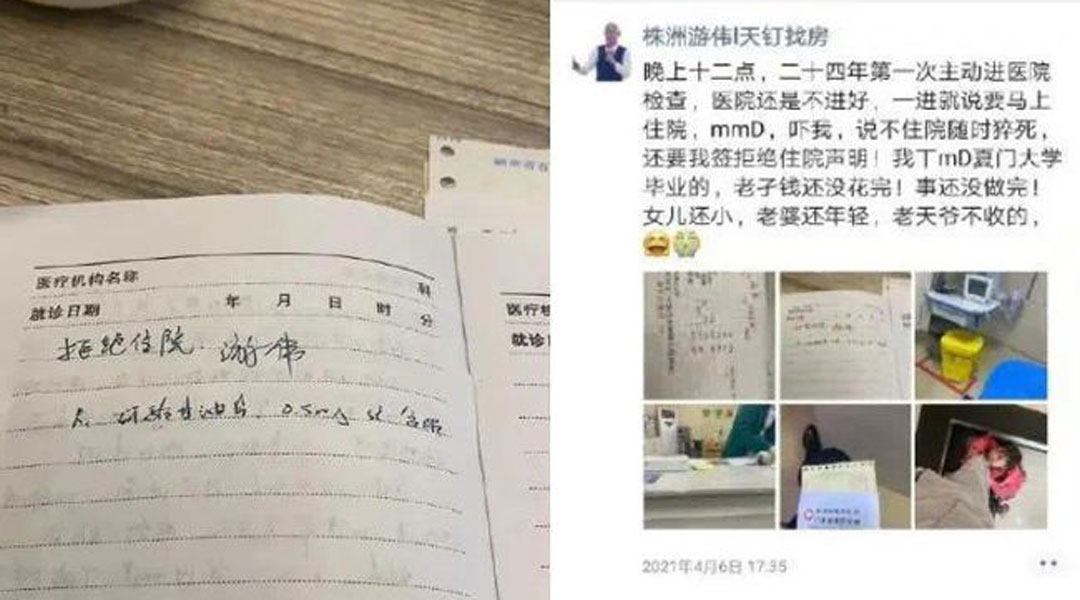 医疗机构名称
科
就诊日期 年 月 日 时 分
拒绝住院. 游伟
硝酸甘油 0.5mg
就诊
株洲游伟|天钉找房
晚上十二点，二十四年第一次主动进医院
检查，医院还是不进好，一进就说要马上
住院，mmD，吓我，说不住院随时猝死，
还要我签拒绝住院声明！我TmD夏门大学
毕业的，老子钱还没花完！事还没做完！
女儿还小，老婆还年轻，老天爷不收的，
2021年4月6日 17:35